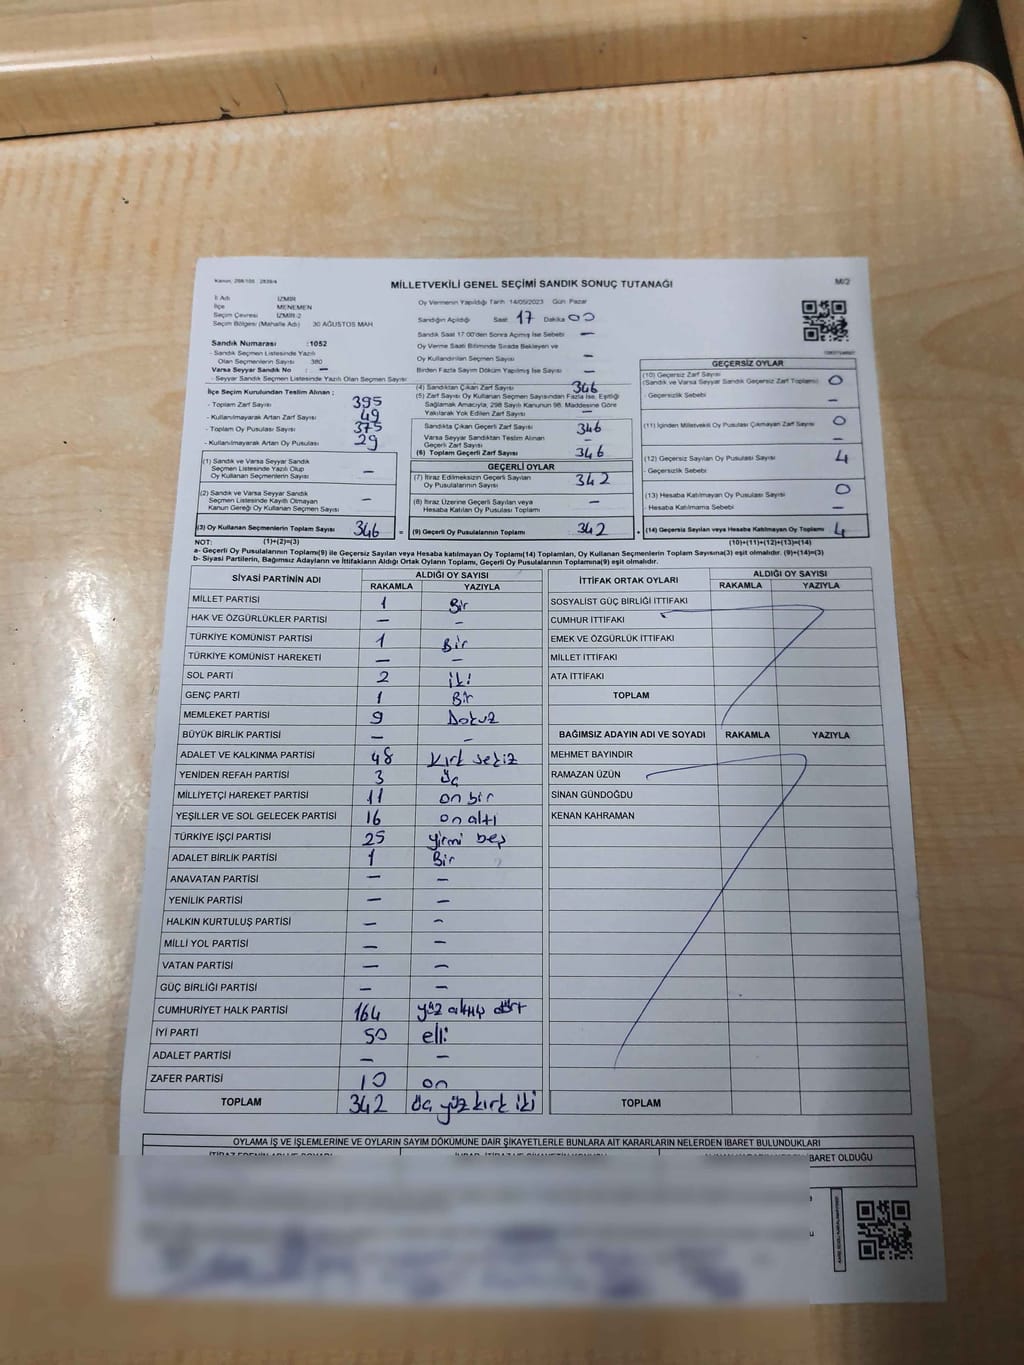 Kanun: 298/105 - 2839/4
MİLLETVEKİLİ GENEL SEÇİMİ SANDIK SONUÇ TUTANAĞI
M/2
İl Adı İZMİR
İlçe MENEMEN
Seçim Çevresi İZMİR-2
Seçim Bölgesi (Mahalle Adı) 30 AĞUSTOS MAH.
Sandık Numarası :1052
- Sandık Seçmen Listesinde Yazılı
Olan Seçmenlerin Sayısı 380
Varsa Seyyar Sandık No : —
- Seyyar Sandık Seçmen Listesinde Yazılı Olan Seçmen Sayısı:
İlçe Seçim Kurulundan Teslim Alınan ;
- Toplam Zarf Sayısı 395
- Kullanılmayarak Artan Zarf Sayısı 49
- Toplam Oy Pusulası Sayısı 375
- Kullanılmayarak Artan Oy Pusulası 29
(1) Sandık ve Varsa Seyyar Sandık
Seçmen Listesinde Yazılı Olup
Oy Kullanan Seçmenlerin Sayısı —
(2) Sandık ve Varsa Seyyar Sandık
Seçmen Listesinde Kayıtlı Olmayan
Kanun Gereği Oy Kullanan Seçmen Sayısı —
(3) Oy Kullanan Seçmenlerin Toplam Sayısı 346
Oy Vermenin Yapıldığı Tarih :14/05/2023 Gün Pazar
Sandığın Açıldığı Saat 17 Dakika 00
Sandık Saat 17:00'den Sonra Açılmış İse Sebebi —
Oy Verme Saati Bitiminde Sırada Bekleyen ve
Oy Kullandırılan Seçmen Sayısı —
Birden Fazla Sayım Döküm Yapılmış İse Sayısı —
(4) Sandıktan Çıkan Zarf Sayısı 346
(5) Zarf Sayısı Oy Kullanan Seçmen Sayısından Fazla İse, Eşitliği
Sağlamak Amacıyla, 298 Sayılı Kanunun 98. Maddesine Göre
Yakılarak Yok Edilen Zarf Sayısı —
Sandıkta Çıkan Geçerli Zarf Sayısı 346
Varsa Seyyar Sandıktan Teslim Alınan
Geçerli Zarf Sayısı —
(6) Toplam Geçerli Zarf Sayısı 346
GEÇERLİ OYLAR
(7) İtiraz Edilmeksizin Geçerli Sayılan
Oy Pusulalarının Sayısı 342
(8) İtiraz Üzerine Geçerli Sayılan veya
Hesaba Katılan Oy Pusulalarının Sayısı —
= (9) Geçerli Oy Pusulalarının Toplamı 342
GEÇERSİZ OYLAR
(10) Geçersiz Zarf Sayısı
(Sandık ve Varsa Seyyar Sandık Geçersiz Zarf Toplamı) 0
- Geçersizlik Sebebi —
(11) İçinden Milletvekili Oy Pusulası Çıkmayan Zarf Sayısı 0
—
(12) Geçersiz Sayılan Oy Pusulası Sayısı 4
- Geçersizlik Sebebi
(13) Hesaba Katılmayan Oy Pusulası Sayısı 0
- Hesaba Katılmama Sebebi —
+ (14) Geçersiz Sayılan veya Hesaba Katılmayan Oy Toplamı 4
NOT: (1)+(2)=(3) (10)+(11)+(12)+(13)=(14)
a- Geçerli Oy Pusulalarının Toplamı(9) ile Geçersiz Sayılan veya Hesaba katılmayan Oy Toplamı(14) Toplamları, Oy Kullanan Seçmenlerin Toplam Sayısına(3) eşit olmalıdır. (9)+(14)=(3)
b- Siyasi Partilerin, Bağımsız Adayların ve İttifakların Aldığı Ortak Oyların Toplamı, Geçerli Oy Pusulalarının Toplamına(9) eşit olmalıdır.
SİYASİ PARTİNİN ADI ALDIĞI OY SAYISI
RAKAMLA YAZIYLA
MİLLET PARTİSİ 1 Bir
HAK VE ÖZGÜRLÜKLER PARTİSİ — —
TÜRKİYE KOMÜNİST PARTİSİ 1 Bir
TÜRKİYE KOMÜNİST HAREKETİ — —
SOL PARTİ 2 iki
GENÇ PARTİ 1 Bir
MEMLEKET PARTİSİ 9 Dokuz
BÜYÜK BİRLİK PARTİSİ — —
ADALET VE KALKINMA PARTİSİ 48 kırk sekiz
YENİDEN REFAH PARTİSİ 3 üç
MİLLİYETÇİ HAREKET PARTİSİ 11 on bir
YEŞİLLER VE SOL GELECEK PARTİSİ 16 on altı
TÜRKİYE İŞÇİ PARTİSİ 25 yirmi beş
ADALET BİRLİK PARTİSİ 1 Bir
ANAVATAN PARTİSİ — —
YENİLİK PARTİSİ — —
HALKIN KURTULUŞ PARTİSİ — —
MİLLİ YOL PARTİSİ — —
VATAN PARTİSİ — —
GÜÇ BİRLİĞİ PARTİSİ — —
CUMHURİYET HALK PARTİSİ 164 yüz altmış dört
İYİ PARTİ 50 elli
ADALET PARTİSİ — —
ZAFER PARTİSİ 10 on
TOPLAM 342 üç yüz kırk iki
İTTİFAK ORTAK OYLARI ALDIĞI OY SAYISI
RAKAMLA YAZIYLA
SOSYALİST GÜÇ BİRLİĞİ İTTİFAKI
CUMHUR İTTİFAKI
EMEK VE ÖZGÜRLÜK İTTİFAKI
MİLLET İTTİFAKI
ATA İTTİFAKI
TOPLAM
BAĞIMSIZ ADAYIN ADI VE SOYADI RAKAMLA YAZIYLA
MEHMET BAYINDIR
RAMAZAN ÜZÜN
SİNAN GÜNDOĞDU
KENAN KAHRAMAN
TOPLAM
OYLAMA İŞ VE İŞLEMLERİNE VE OYLARIN SAYIM DÖKÜMÜNE DAİR ŞİKAYETLERLE BUNLARA AİT KARARLARIN NELERDEN İBARET BULUNDUKLARI
İBARET OLDUĞU